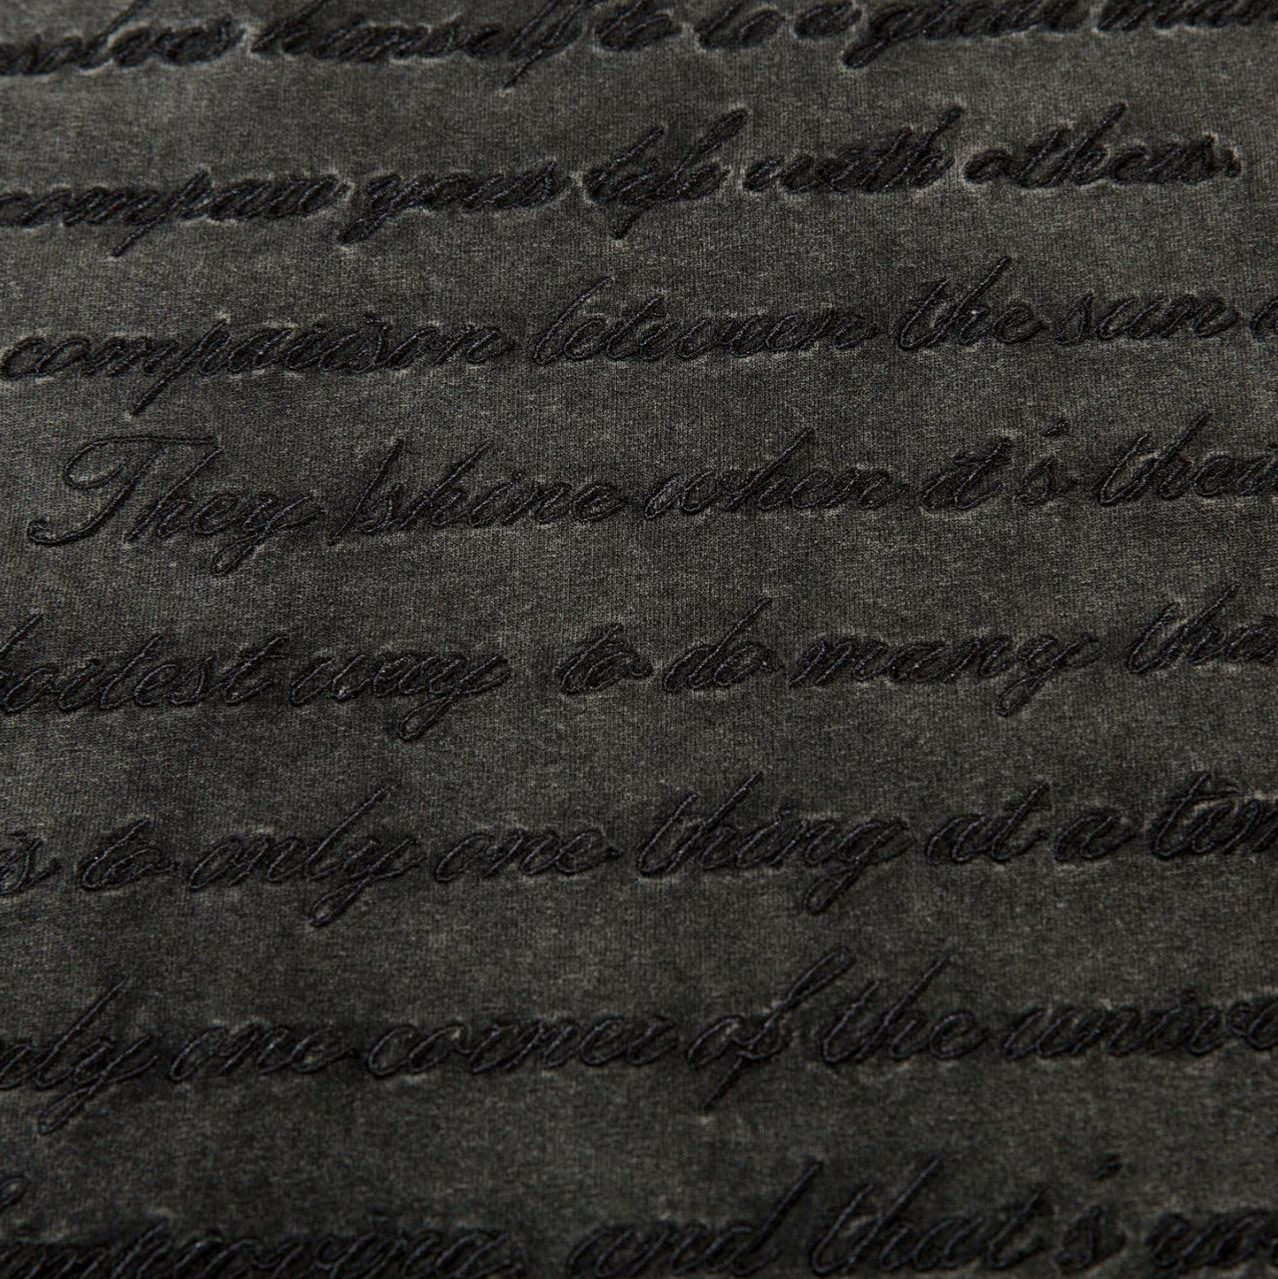 himself to do a great
your life with others.
comparison between the sun
They shine when it's their
way to do many
is to only one thing at a
only one corner of the
and that's